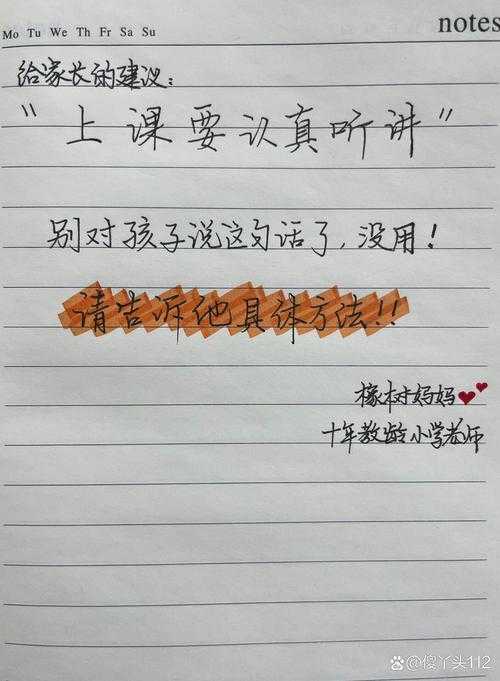 notes
Mo Tu We Th Fr Sa Su
给家长的建议：
“上课要认真听讲”
别对孩子说这句话了，没用！
请告诉他具体方法!!
橡树妈妈
十年教龄小学老师
@傻丫头112